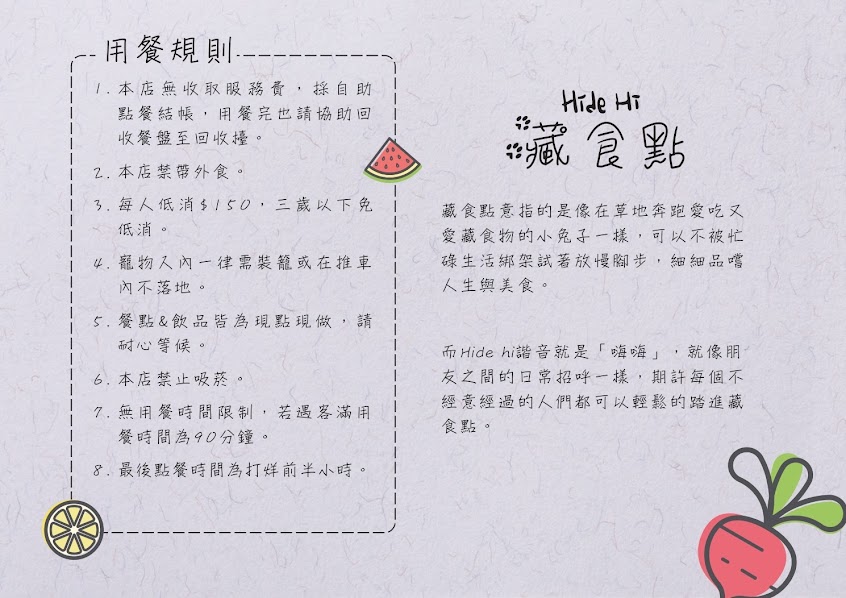 用餐規則
1. 本店無收取服務費，採自助
點餐結帳，用餐完也請協助回
收餐盤至回收檯。
2. 本店禁帶外食。
3. 每人低消$150，三歲以下免
低消。
4. 寵物入內一律需裝籠或在推車
內不落地。
5. 餐點&飲品皆為現點現做，請
耐心等候。
6. 本店禁止吸菸。
7. 無用餐時間限制，若遇客滿用
餐時間為90分鐘。
8. 最後點餐時間為打烊前半小時。
Hide Hi
藏食點
藏食點意指的是像在草地奔跑愛吃又
愛藏食物的小兔子一樣，可以不被忙
碌生活綁架試著放慢腳步，細細品嚐
人生與美食。
而Hide hi諧音就是「嗨嗨」，就像朋
友之間的日常招呼一樣，期許每個不
經意經過的人們都可以輕鬆的踏進藏
食點。